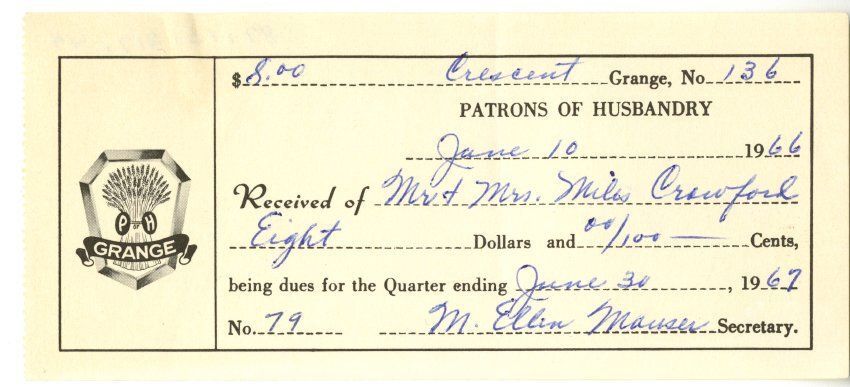 $ 8.00 Crescent Grange, No. 136
PATRONS OF HUSBANDRY
June 10 1966
Received of Mr & Mrs. Miles Crowford
Eight Dollars and 00/100 — Cents,
being dues for the Quarter ending June 30, 1967
No. 79 M. Ellen Mauser Secretary.
P OF H
GRANGE